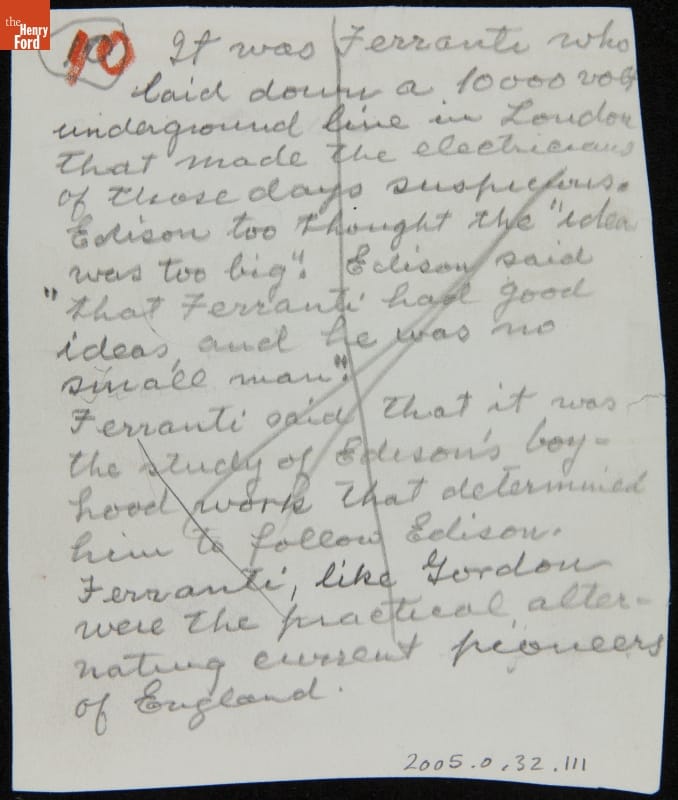 the
Henry
Ford
10 It was Ferranti who
laid down a 10000 volt
underground line in London
that made the electricians
of those days suspicious.
Edison too thought the "idea
was too big". Edison said
"that Ferranti had good
ideas, and he was no
small man".
Ferranti said that it was
the study of Edison's boy-
hood work that determined
him to follow Edison.
Ferranti, like Gordon
were the practical alter-
nating current pioneers
of England.
2005.0.32.111